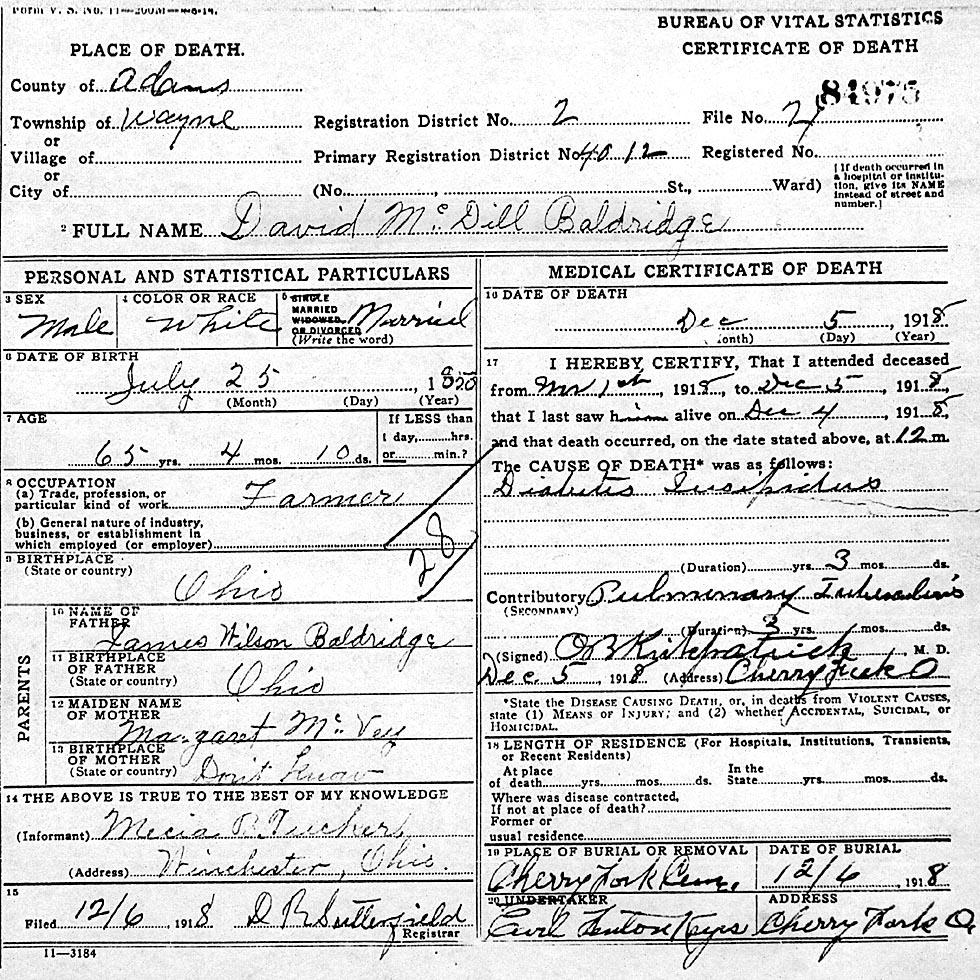 Form V. S. No. 11—200M—
BUREAU OF VITAL STATISTICS
CERTIFICATE OF DEATH
PLACE OF DEATH.
County of Adams
84975
Township of Wayne Registration District No. 2 File No.
or
Village of Primary Registration District No. 4012 Registered No.
or
City of (No. , St., Ward) [If death occurred in a hospital or institution, give its NAME instead of street and number.]
2 FULL NAME David McDill Baldridge
PERSONAL AND STATISTICAL PARTICULARS
3 SEX Male
4 COLOR OR RACE White
5 SINGLE MARRIED WIDOWED OR DIVORCED (Write the word) Married
6 DATE OF BIRTH
July 25, 1
(Month) (Day) (Year)
7 AGE
65 yrs. 4 mos. 10 ds.
If LESS than
1 day, hrs.
or min.?
8 OCCUPATION
(a) Trade, profession, or
particular kind of work Farmer
(b) General nature of industry,
business, or establishment in
which employed (or employer)
28
9 BIRTHPLACE
(State or country)
Ohio
PARENTS
10 NAME OF
FATHER
James Wilson Baldridge
11 BIRTHPLACE
OF FATHER
(State or country) Ohio
12 MAIDEN NAME
OF MOTHER
Margaret McVey
13 BIRTHPLACE
OF MOTHER
(State or country) Don't know
14 THE ABOVE IS TRUE TO THE BEST OF MY KNOWLEDGE
(Informant)
(Address) Winchester, Ohio.
15
Filed 12/6 1918 D R Sutterfield
Registrar
11—3184
MEDICAL CERTIFICATE OF DEATH
16 DATE OF DEATH
Dec 5, 1918
onth) (Day) (Year)
17 I HEREBY CERTIFY, That I attended deceased
from 1st, 1918, to Dec 5, 1918,
that I last saw him alive on Dec 4, 1918,
and that death occurred, on the date stated above, at 12 m.
The CAUSE OF DEATH* was as follows:
Diabetis Insipidus
(Duration) yrs. 3 mos. ds.
Contributory Pulmonary Tuberculosis
(SECONDARY)
(Duration) 3 yrs. mos. ds.
(Signed) O B Kirkpatrick M. D.
Dec. 5, 1918 (Address) Cherry Fork O
*State the DISEASE CAUSING DEATH, or, in deaths from VIOLENT CAUSES,
state (1) MEANS OF INJURY; and (2) whether ACCIDENTAL, SUICIDAL, or
HOMICIDAL.
18 LENGTH OF RESIDENCE (For Hospitals, Institutions, Transients,
or Recent Residents)
At place In the
of death yrs. mos. ds. State yrs. mos. ds.
Where was disease contracted,
If not at place of death?
Former or
usual residence
19 PLACE OF BURIAL OR REMOVAL
Cherry Fork Cem.
DATE OF BURIAL
12/6 1918
20 UNDERTAKER
ADDRESS
Cherry Fork O.